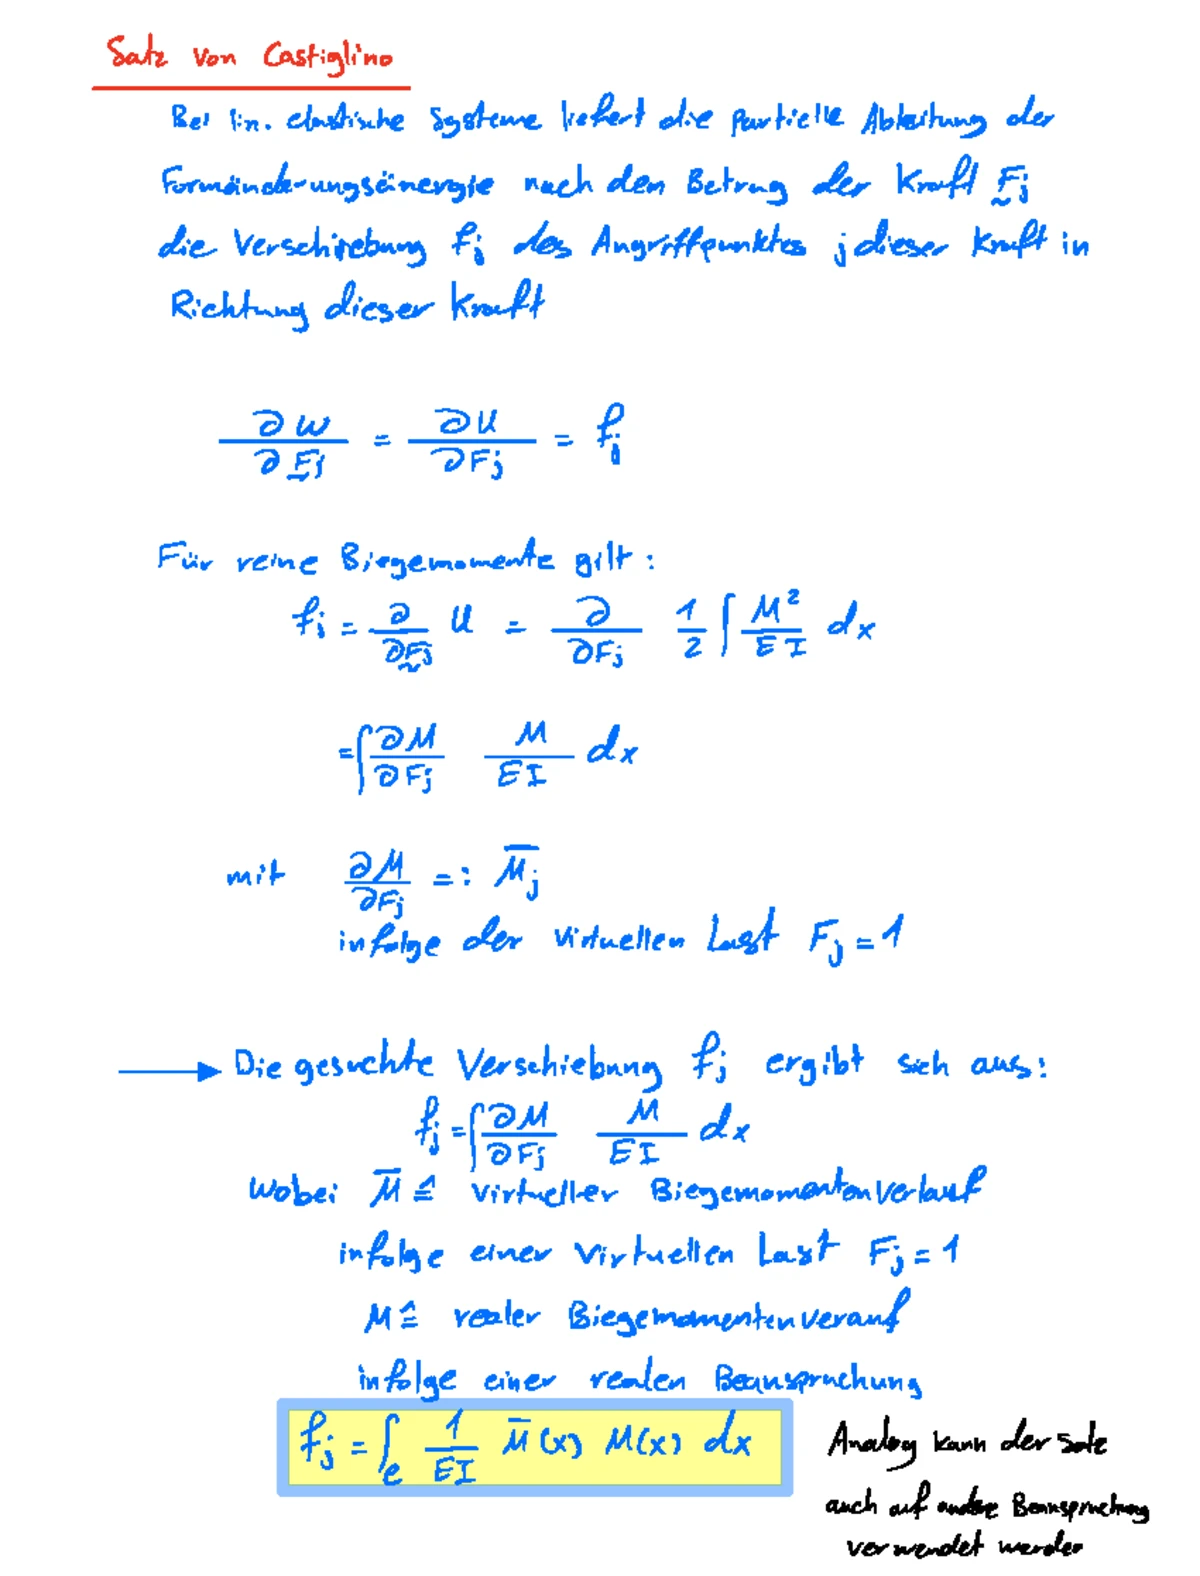 Satz von Castiglino
Bei lin. elastische Systeme liefert die partielle Ableitung der
Formänderungsänergie nach dem Betrag der Kraft Fj
die Verschiebung fj des Angriffpunktes j dieser Kraft in
Richtung dieser Kraft
∂W/∂Fj = ∂U/∂Fj = fj
Für reine Biegemomente gilt:
fj = ∂/∂Fj U = ∂/∂Fj 1/2 ∫ M²/EI dx
= ∫ ∂M/∂Fj M/EI dx
mit ∂M/∂Fj =: M̅j
infolge der virtuellen Last Fj = 1
→ Die gesuchte Verschiebung fj ergibt sich aus:
fj = ∫ ∂M/∂Fj M/EI dx
Wobei M̅ ≙ virtueller Biegemomentenverlauf
infolge einer virtuellen Last Fj = 1
M ≙ realer Biegemomentenverauf
infolge einer realen Beanspruchung
fj = ∫e 1/EI M̅(x) M(x) dx
Analog kann der Satz
auch auf andere Beanspruchung
verwendet werden